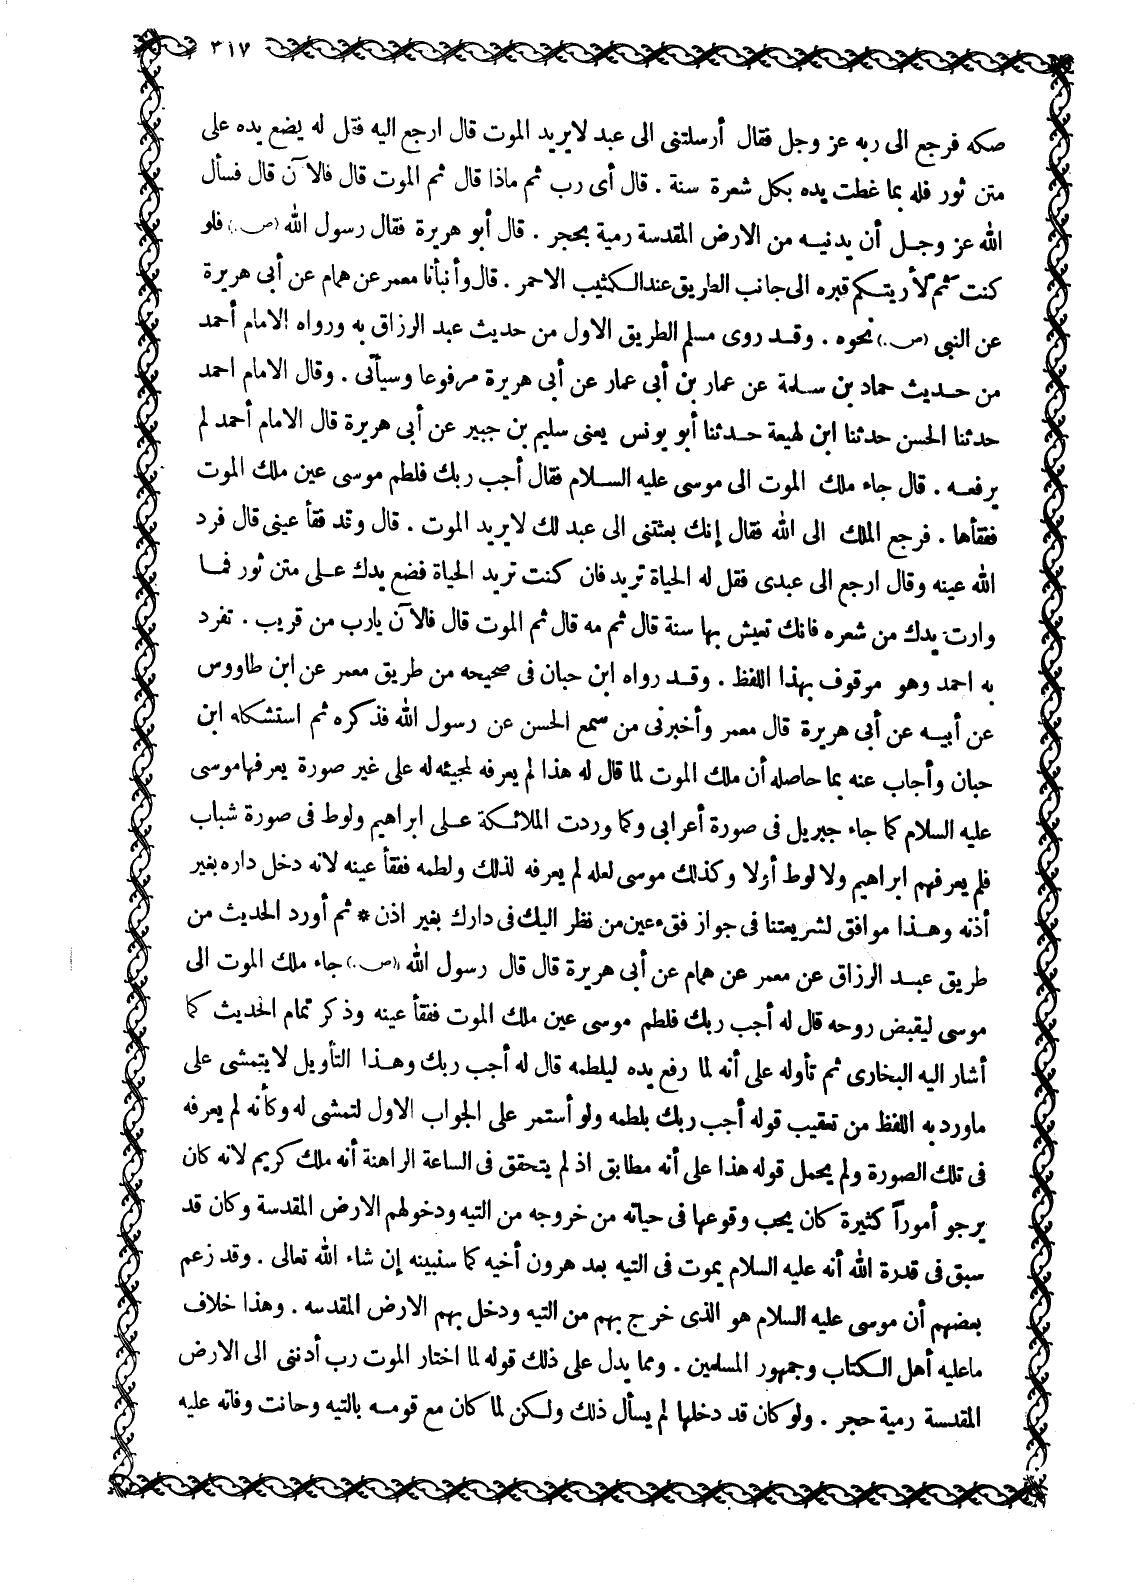 ٣١٧
صكه فرجع الى ربه عز وجل فقال أرسلتنى الى عبد لايريد الموت قال ارجع اليه فقل له يضع يده على
متن ثور فله بما غطت يده بكل شعرة سنة . قال أى رب ثم ماذا قال ثم الموت قال فالآن قال فسأل
الله عز وجل أن يدنيه من الارض المقدسة رمية بحجر . قال أبو هريرة فقال رسول الله (ص.) فلو
كنت ثم لأريتكم قبره الى جانب الطريق عند الكثيب الاحمر . قال وأنبأنا معمر عن همام عن أبى هريرة
عن النبى (ص.) نحوه . وقد روى مسلم الطريق الاول من حديث عبد الرزاق به ورواه الامام أحمد
من حديث حماد بن سلمة عن عمار بن أبى عمار عن أبى هريرة مرفوعا وسيأتى . وقال الامام احمد
حدثنا الحسن حدثنا ابن لهيعة حدثنا أبو يونس يعنى سليم بن جبير عن أبى هريرة قال الامام أحمد لم
يرفعه . قال جاء ملك الموت الى موسى عليه السلام فقال أجب ربك فلطم موسى عين ملك الموت
ففقأها . فرجع الملك الى الله فقال إنك بعثتنى الى عبد لك لايريد الموت . قال وقد فقأ عينى قال فرد
الله عينه وقال ارجع الى عبدى فقل له الحياة تريد فان كنت تريد الحياة فضع يدك على متن ثور فما
وارت يدك من شعره فانك تعيش بها سنة قال ثم مه قال ثم الموت قال فالآن يارب من قريب . تفرد
به احمد وهو موقوف بهذا اللفظ . وقد رواه ابن حبان فى صحيحه من طريق معمر عن ابن طاووس
عن أبيه عن أبى هريرة قال معمر وأخبرنى من سمع الحسن عن رسول الله فذكره ثم استشكله ابن
حبان وأجاب عنه بما حاصله أن ملك الموت لما قال له هذا لم يعرفه لمجيئه له على غير صورة يعرفها موسى
عليه السلام كما جاء جبريل فى صورة أعرابى وكما وردت الملائكة على ابراهيم ولوط فى صورة شباب
فلم يعرفهم ابراهيم ولا لوط أولا وكذلك موسى لعله لم يعرفه لذلك ولطمه ففقأ عينه لانه دخل داره بغير
أذنه وهذا موافق لشريعتنا فى جواز فقء عين من نظر اليك فى دارك بغير اذن * ثم أورد الحديث من
طريق عبد الرزاق عن معمر عن همام عن أبى هريرة قال قال رسول الله (ص.) جاء ملك الموت الى
موسى ليقبض روحه قال له أجب ربك فلطم موسى عين ملك الموت ففقأ عينه وذكر تمام الحديث كما
أشار اليه البخارى ثم تأوله على أنه لما رفع يده ليلطمه قال له أجب ربك وهذا التأويل لا يتمشى على
ماورد به اللفظ من تعقيب قوله أجب ربك بلطمه ولو أستمر على الجواب الاول لتمشى له وكأنه لم يعرفه
فى تلك الصورة ولم يحمل قوله هذا على أنه مطابق اذ لم يتحقق فى الساعة الراهنة أنه ملك كريم لانه كان
يرجو أموراً كثيرة كان يحب وقوعها فى حياته من خروجه من التيه ودخولهم الارض المقدسة وكان قد
سبق فى قدرة الله أنه عليه السلام يموت فى التيه بعد هرون أخيه كما سنبينه إن شاء الله تعالى . وقد زعم
بعضهم أن موسى عليه السلام هو الذى خرج بهم من التيه ودخل بهم الارض المقدسه . وهذا خلاف
ماعليه أهل الكتاب وجمهور المسلمين . ومما يدل على ذلك قوله لما اختار الموت رب أدننى الى الارض
المقدسة رمية حجر . ولو كان قد دخلها لم يسأل ذلك ولكن لما كان مع قومه بالتيه وحانت وفاته عليه